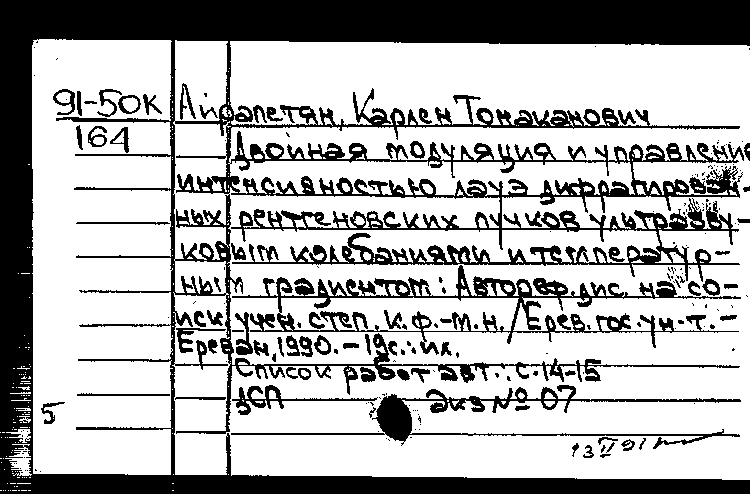 91-50К Айрапетян, Карлен Томаканович
164 Двойная модуляция и управление
интенсивностью лауэ дифрагирован-
ных рентгеновских пучков ультразву-
ковым колебаниями и температур-
ным градиентом: Автореф. дис. на со-
иск. учен. степ. к.ф.-м.н. / Ерев. гос. ун-т. -
Ереван, 1990. - 19с.: ил.
Список работ авт.: с. 14-15
ДСП Экз № 07
5
13 II 91